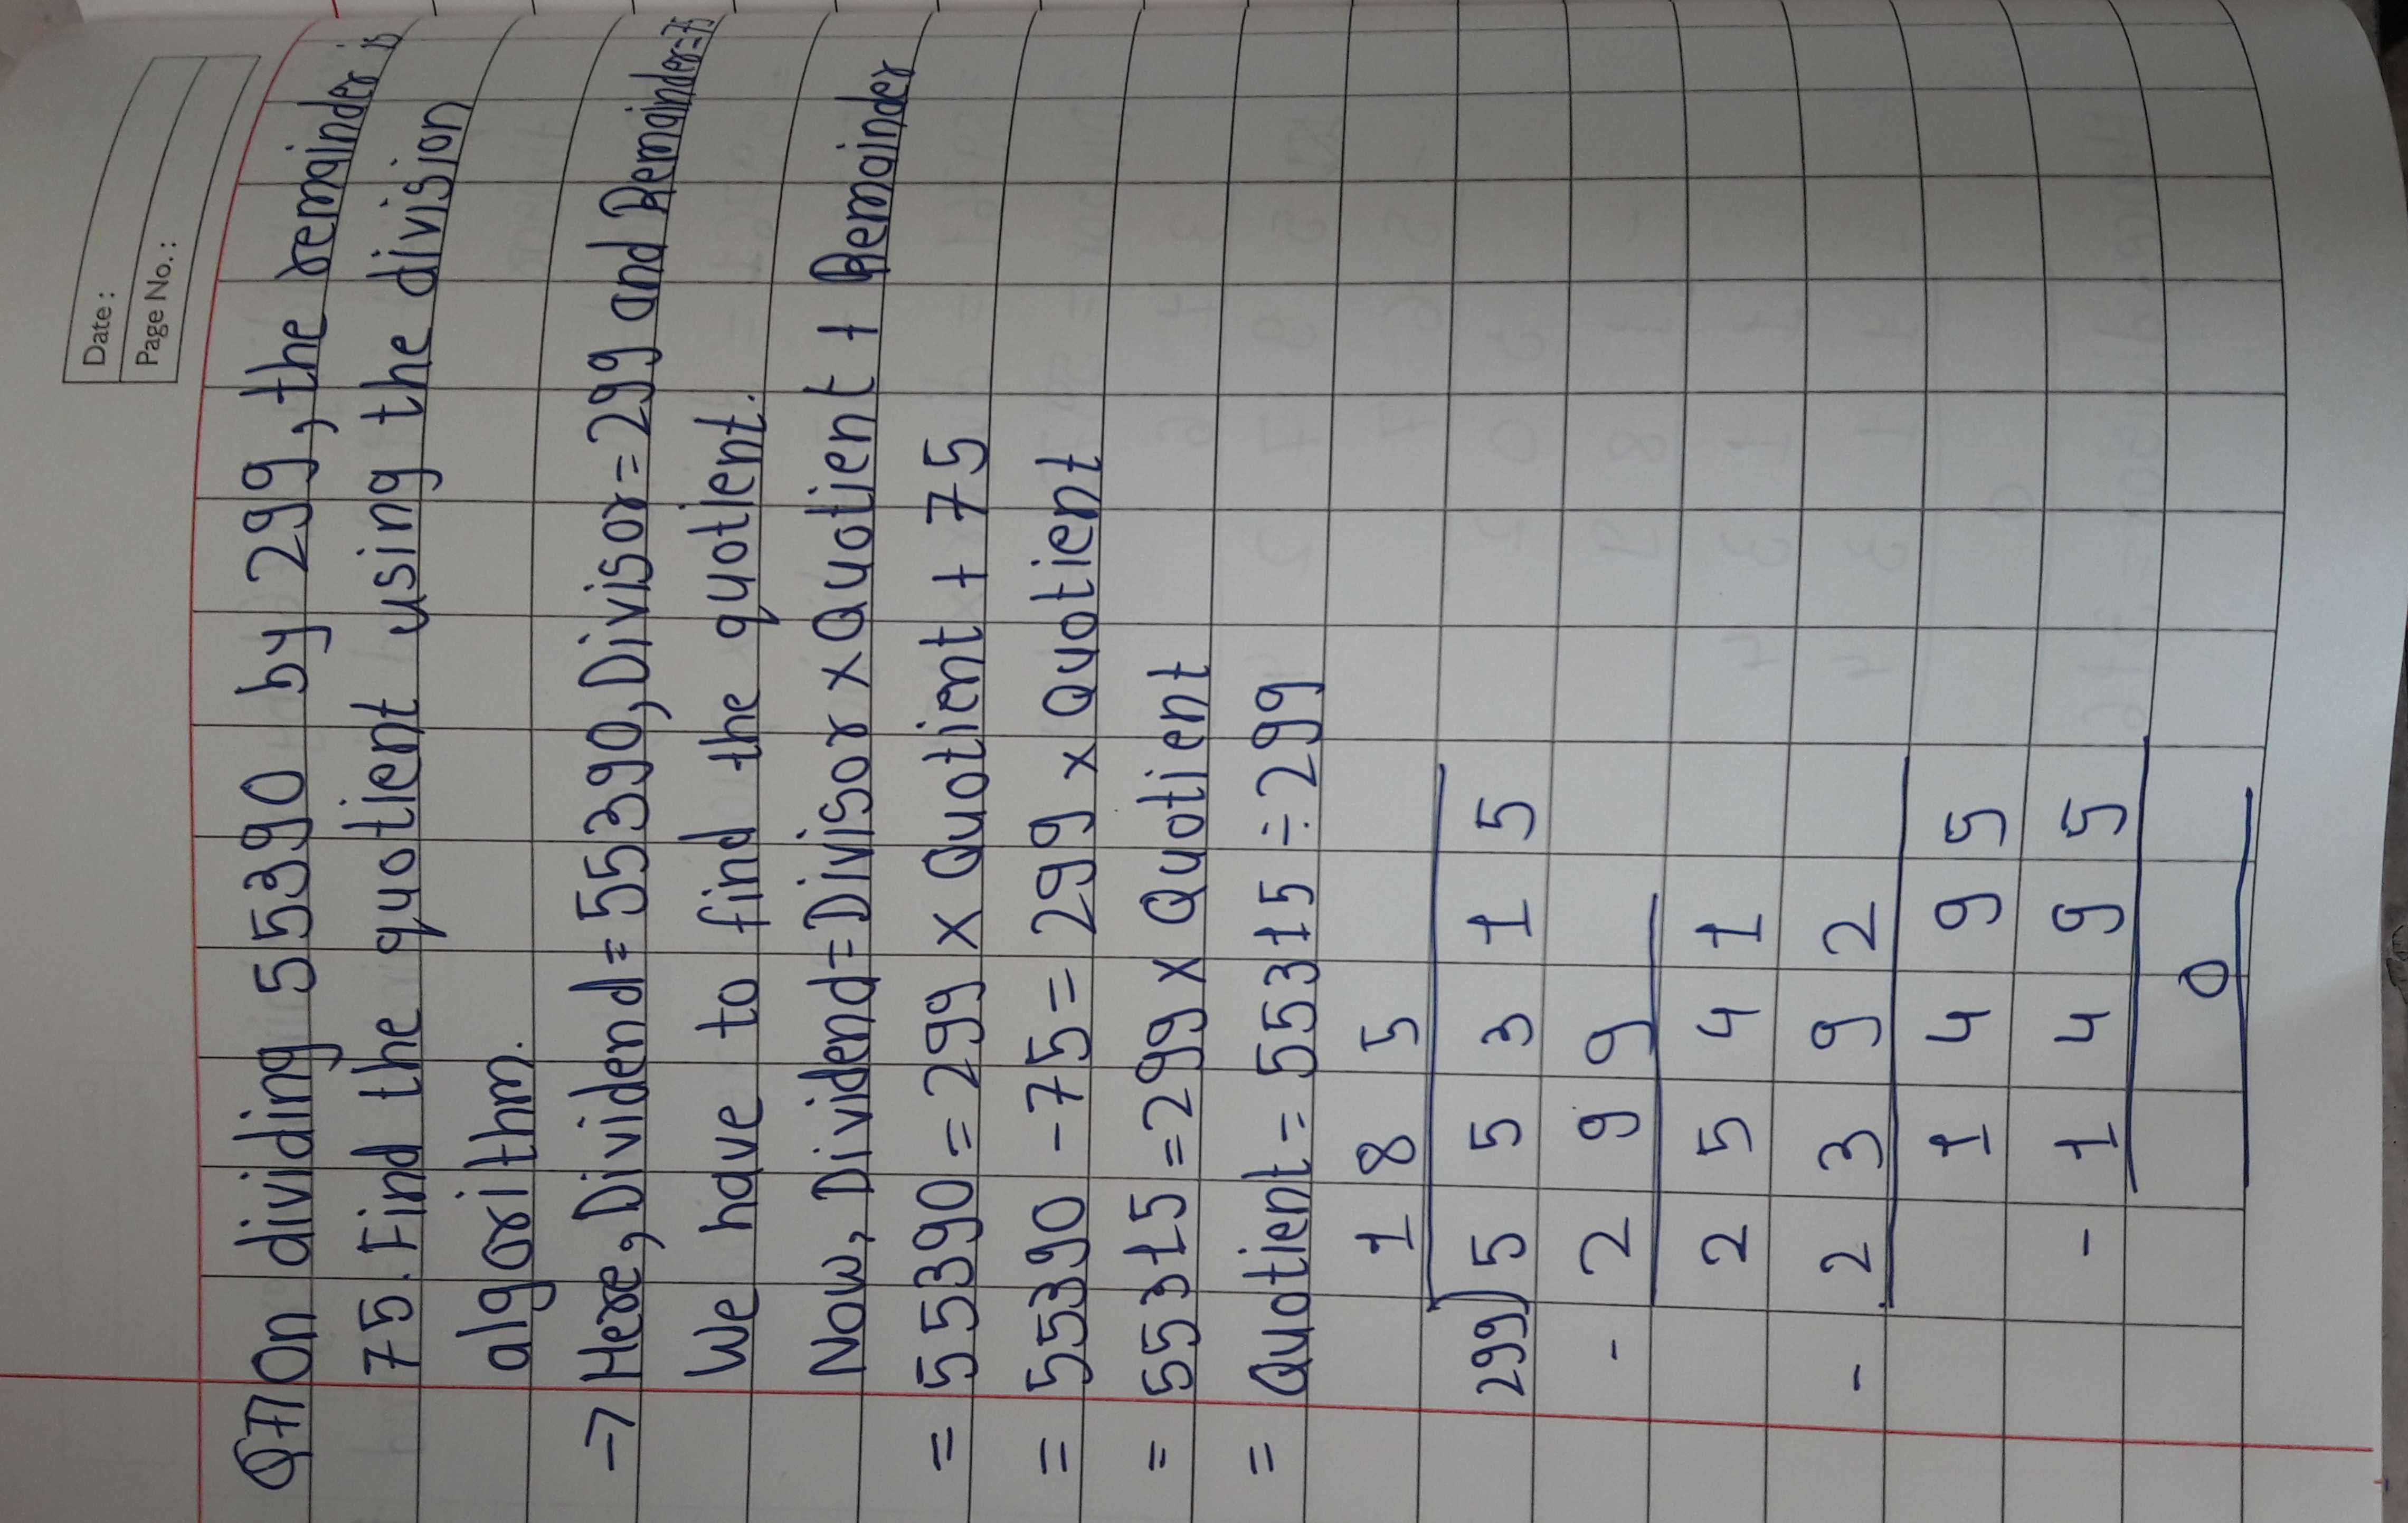 Date :
Page No. :
Q7) On dividing 55390 by 299, the remainder is
75. Find the quotient using the division
algorithm.
→ Here, Dividend = 55390, Divisor = 299 and Remainder = 75
We have to find the quotient.
Now, Dividend = Divisor x Quotient + Remainder
= 55390 = 299 x Quotient + 75
= 55390 - 75 = 299 x Quotient
= 55315 = 299 x Quotient
= Quotient = 55315 ÷ 299
1 8 5
299) 5 5 3 1 5
- 2 9 9
2 5 4 1
- 2 3 9 2
1 4 9 5
- 1 4 9 5
0